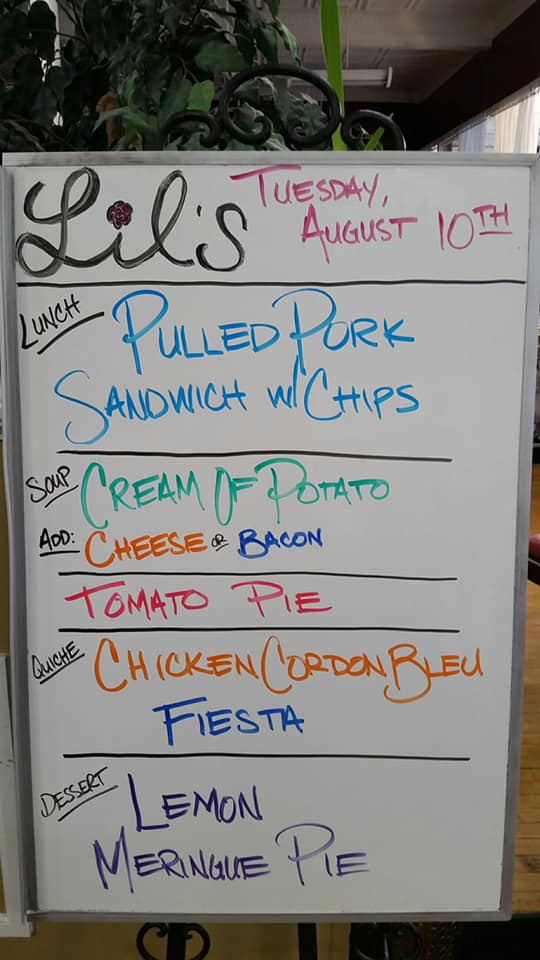 Lil's
TUESDAY,
AUGUST 10TH
LUNCH
PULLED PORK
SANDWICH W/ CHIPS
SOUP
CREAM OF POTATO
ADD: CHEESE OR BACON
TOMATO PIE
QUICHE
CHICKEN CORDON BLEU
FIESTA
DESSERT
LEMON
MERINGUE PIE